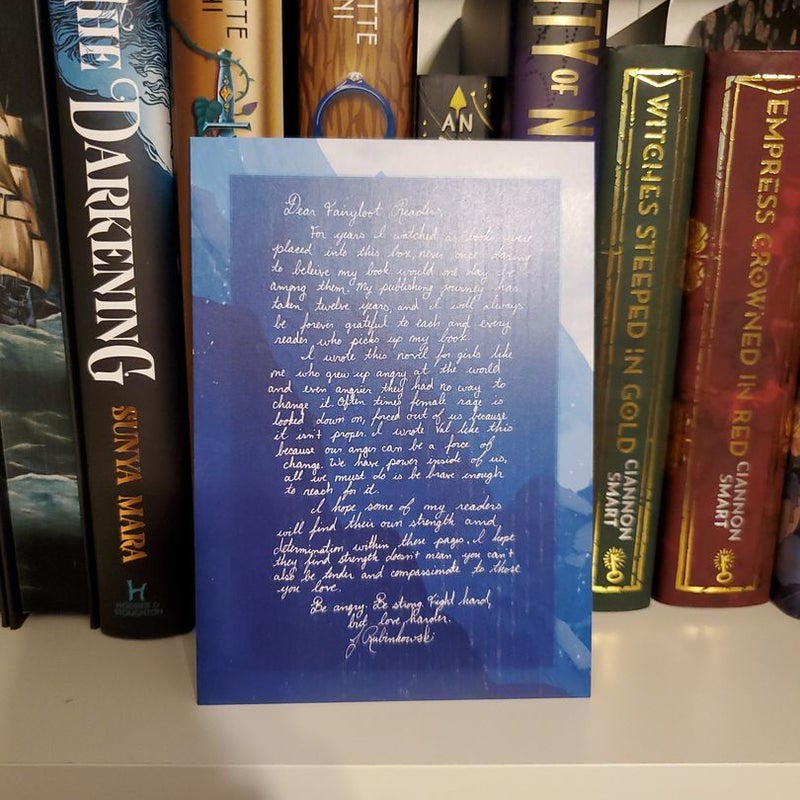 THE DARKENING
SUNYA MARA
H
HODDER &
STOUGHTON
ETTE
HI
ETTE
NI
AN
ITY OF N
WITCHES STEEPED IN GOLD
CIANNON
SMART
EMPRESS CROWNED IN RED
CIANNON
SMART
Dear Fairyloot Readers,
For years I watched as books were
placed into this box, never once daring
to beleive my book would one day be
among them. My publishing journey has
taken twelve years, and I will always
be forever grateful to each and every
reader who picks up my book.
I wrote this novel for girls like
me who grew up angry at the world
and even angrier they had no way to
change it. Often times female rage is
looked down on, forced out of us because
it isn't proper. I wrote Val like this
because our anger can be a force of
change. We have power inside of us,
all we must do is be brave enough
to reach for it.
I hope some of my readers
will find their own strength and
determination within these pages. I hope
they find strength doesn't mean you can't
also be tender and compassionate to those
you love.
Be angry. Be strong. Fight hard,
but love harder.
J Rubinkowski